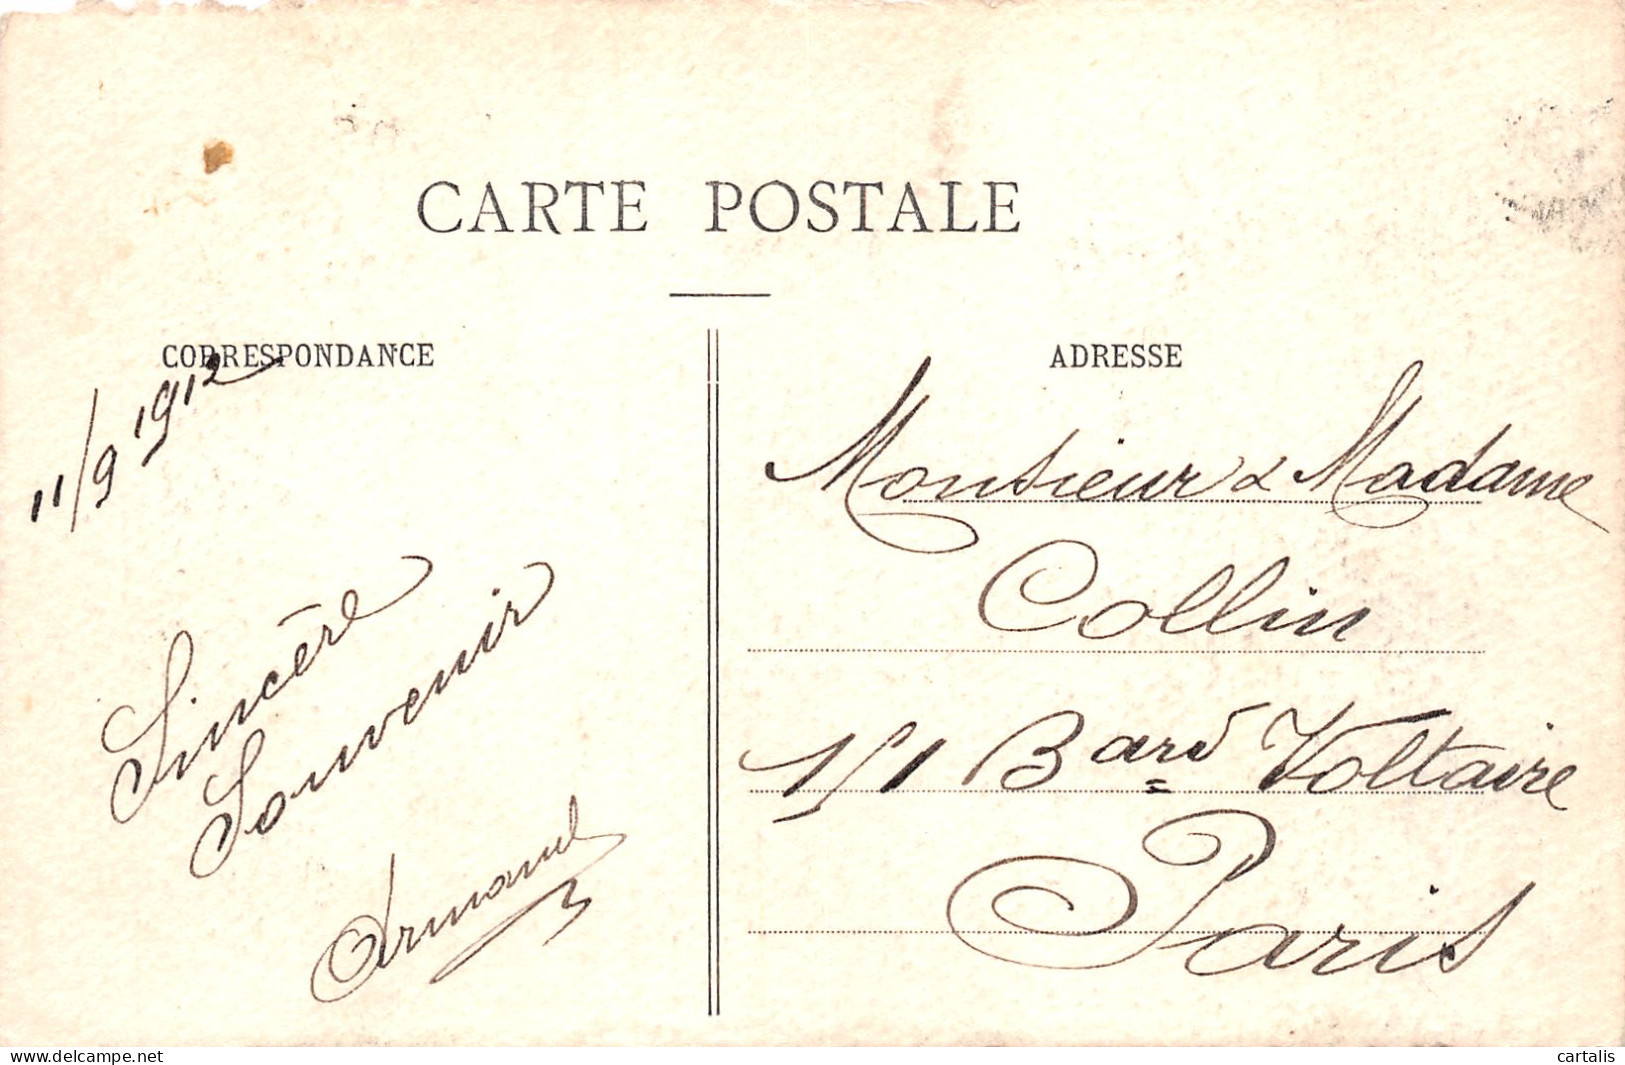 CARTE POSTALE
CORRESPONDANCE
11/9 1912
Sincère
Souvenir
Armand
ADRESSE
Monsieur & Madame
Collin
151 Bard Voltaire
Paris
www.delcampe.net
cartalis